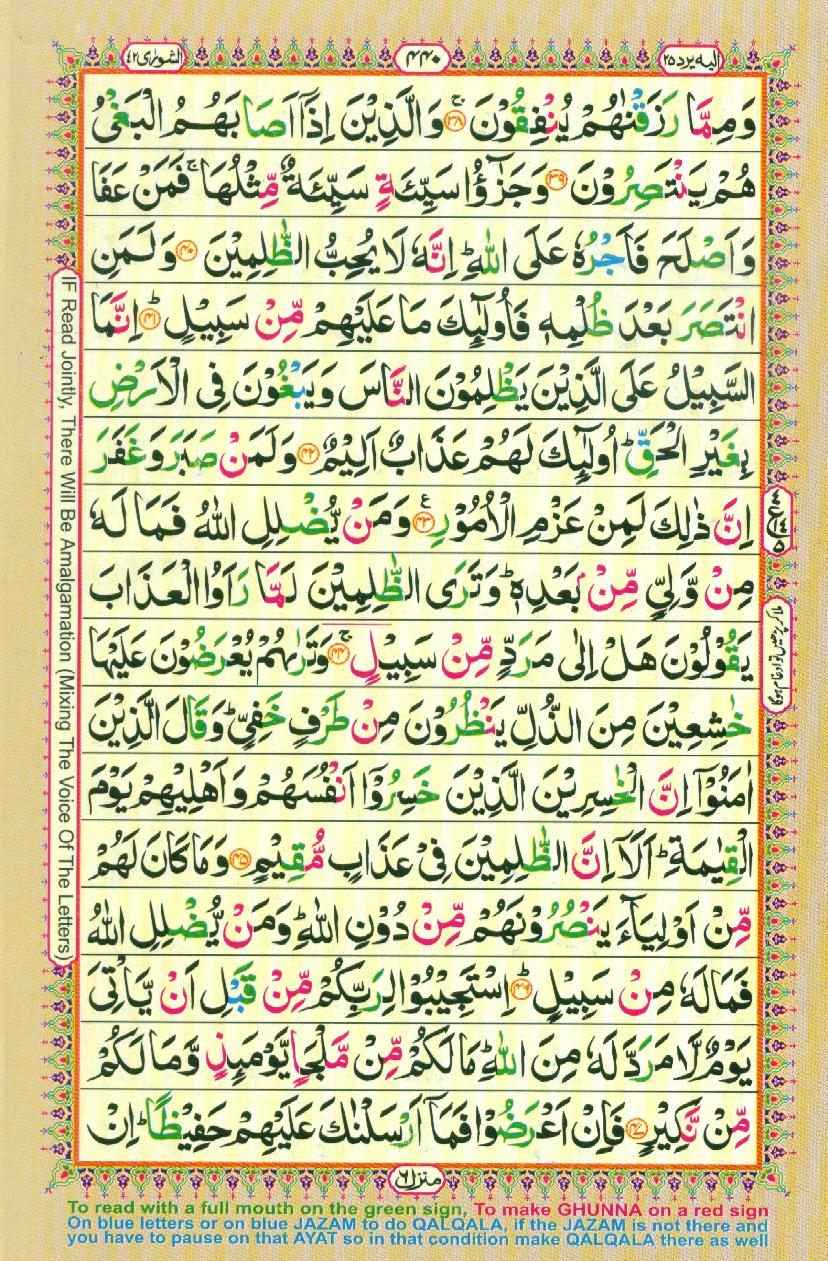 الشورٰی ۴۲
۴۴۰
الیہ یرد ۲۵
وَ مِمَّا رَزَقْنٰهُمْ یُنْفِقُوْنَ ۚ﴿۳۸﴾ وَ الَّذِیْنَ اِذَاۤ اَصَابَهُمُ الْبَغْیُ
هُمْ یَنْتَصِرُوْنَ ﴿۳۹﴾ وَ جَزٰٓؤُا سَیِّئَةٍ سَیِّئَةٌ مِّثْلُهَا ۚ فَمَنْ عَفَا
وَ اَصْلَحَ فَاَجْرُهٗ عَلَی اللّٰهِ ؕ اِنَّهٗ لَا یُحِبُّ الظّٰلِمِیْنَ ﴿۴۰﴾ وَ لَمَنِ
انْتَصَرَ بَعْدَ ظُلْمِهٖ فَاُولٰٓىِٕكَ مَا عَلَیْهِمْ مِّنْ سَبِیْلٍ ؕ﴿۴۱﴾ اِنَّمَا
السَّبِیْلُ عَلَی الَّذِیْنَ یَظْلِمُوْنَ النَّاسَ وَ یَبْغُوْنَ فِی الْاَرْضِ
بِغَیْرِ الْحَقِّ ؕ اُولٰٓىِٕكَ لَهُمْ عَذَابٌ اَلِیْمٌ ﴿۴۲﴾ وَ لَمَنْ صَبَرَ وَ غَفَرَ
اِنَّ ذٰلِكَ لَمِنْ عَزْمِ الْاُمُوْرِ ﴿۴۳﴾ وَ مَنْ یُّضْلِلِ اللّٰهُ فَمَا لَهٗ
مِنْ وَّلِیٍّ مِّنْۢ بَعْدِهٖ ؕ وَ تَرَی الظّٰلِمِیْنَ لَمَّا رَاَوُا الْعَذَابَ
یَقُوْلُوْنَ هَلْ اِلٰی مَرَدٍّ مِّنْ سَبِیْلٍ ۚ﴿۴۴﴾ وَ تَرٰىهُمْ یُعْرَضُوْنَ عَلَیْهَا
خٰشِعِیْنَ مِنَ الذُّلِّ یَنْظُرُوْنَ مِنْ طَرْفٍ خَفِیٍّ ؕ وَ قَالَ الَّذِیْنَ
اٰمَنُوْۤا اِنَّ الْخٰسِرِیْنَ الَّذِیْنَ خَسِرُوْۤا اَنْفُسَهُمْ وَ اَهْلِیْهِمْ یَوْمَ
الْقِیٰمَةِ ؕ اَلَاۤ اِنَّ الظّٰلِمِیْنَ فِیْ عَذَابٍ مُّقِیْمٍ ﴿۴۵﴾ وَ مَا كَانَ لَهُمْ
مِّنْ اَوْلِیَآءَ یَنْصُرُوْنَهُمْ مِّنْ دُوْنِ اللّٰهِ ؕ وَ مَنْ یُّضْلِلِ اللّٰهُ
فَمَا لَهٗ مِنْ سَبِیْلٍ ؕ﴿۴۶﴾ اِسْتَجِیْبُوْا لِرَبِّكُمْ مِّنْ قَبْلِ اَنْ یَّاْتِیَ
یَوْمٌ لَّا مَرَدَّ لَهٗ مِنَ اللّٰهِ ؕ مَا لَكُمْ مِّنْ مَّلْجَاٍ یَّوْمَىِٕذٍ وَّ مَا لَكُمْ
مِّنْ نَّكِیْرٍ ﴿۴۷﴾ فَاِنْ اَعْرَضُوْا فَمَاۤ اَرْسَلْنٰكَ عَلَیْهِمْ حَفِیْظًا ؕ اِنْ
IF Read Jointly, There Will Be Amalgamation (Mixing The Voice Of The Letters)
منزل ۶
To read with a full mouth on the green sign, To make GHUNNA on a red sign
On blue letters or on blue JAZAM to do QALQALA, if the JAZAM is not there and
you have to pause on that AYAT so in that condition make QALQALA there as well